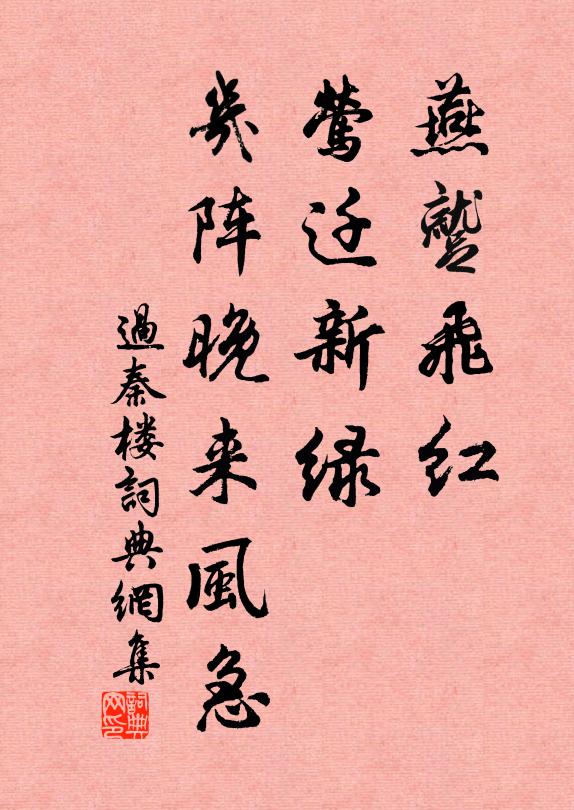 燕蹴飛红
莺迁新绿
几阵晚来風急
過秦楼詞典網集
詞典网印